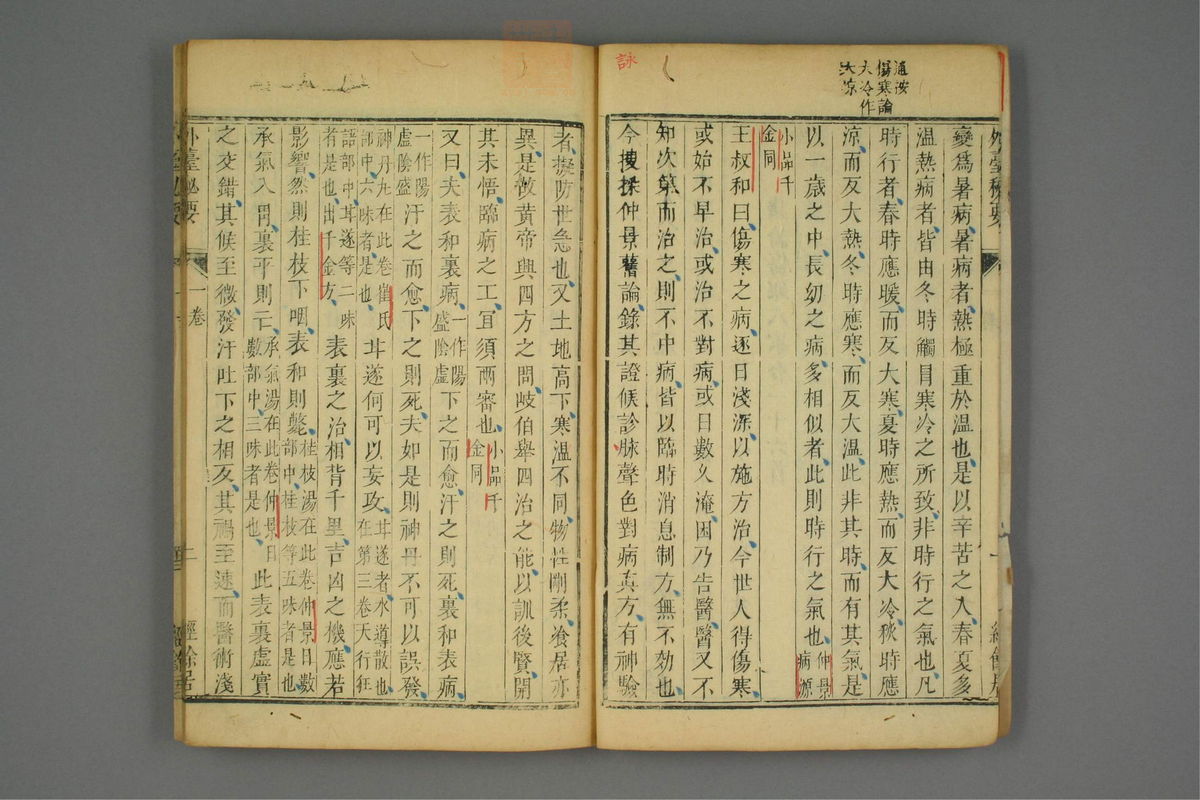 詠
溫按
傷寒論
大冷作
大凉
變爲暑病暑病者熱極重於溫也是以辛苦之人春夏多
溫熱病者皆由冬時觸冒寒冷之所致非時行之氣也凡
時行者春時應暖而反大寒夏時應熱而反大冷秋時應
涼而反大熱冬時應寒而反大溫此非其時而有其氣是
以一歲之中長幼之病多相似者此則時行之氣也仲景
病源
小品千
金同
王叔和曰傷寒之病逐日淺深以施方治今世人得傷寒
或始不早治或治不對病或日數久淹困乃告醫醫又不
知次第而治之則不中病皆以臨時消息制方無不効也
今搜採仲景舊論錄其證候診脉聲色對病真方有神驗
者擬防世急也又土地高下寒溫不同物性剛柔飡居亦
異是故黃帝興四方之問歧伯舉四治之能以訓後賢開
其未悟臨病之工宜須兩審也小品千
金同
又曰夫表和裏病一作陽
盛陰虛下之而愈汗之則死裏和表病
一作陽
虛陰盛汗之而愈下之則死夫如是則神丹不可以誤發
神丹丸在此卷崔氏
部中六味者是也甘遂何可以妄攻甘遂者水導散也
在第三卷天行狂
語部中甘遂等二味
者是也出千金方表裏之治相背千里吉凶之機應若
影響然則桂枝下咽表和則斃桂枝湯在此卷仲景日數
部中桂枝等五味者是也
承氣入胃裏平則亡承氣湯在此卷仲景日
數部中三味者是也此表裏虛實
之交錯其候至微發汗吐下之相反其禍至速而醫術淺
外臺秘要
一卷
二
經餘居